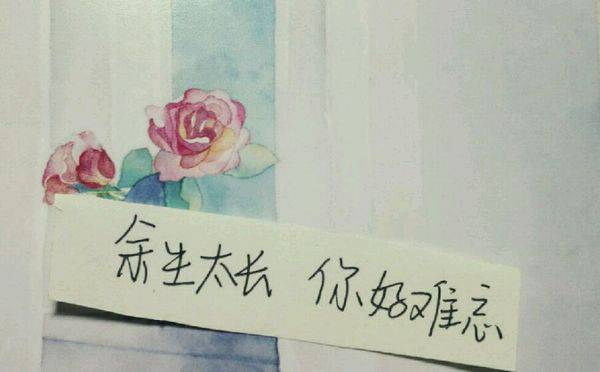 余生太长 你好难忘